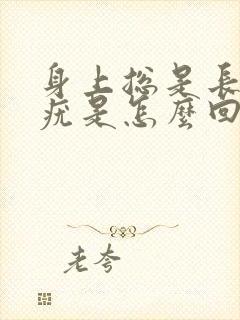 身上總是長
疣是怎麼回
老夸